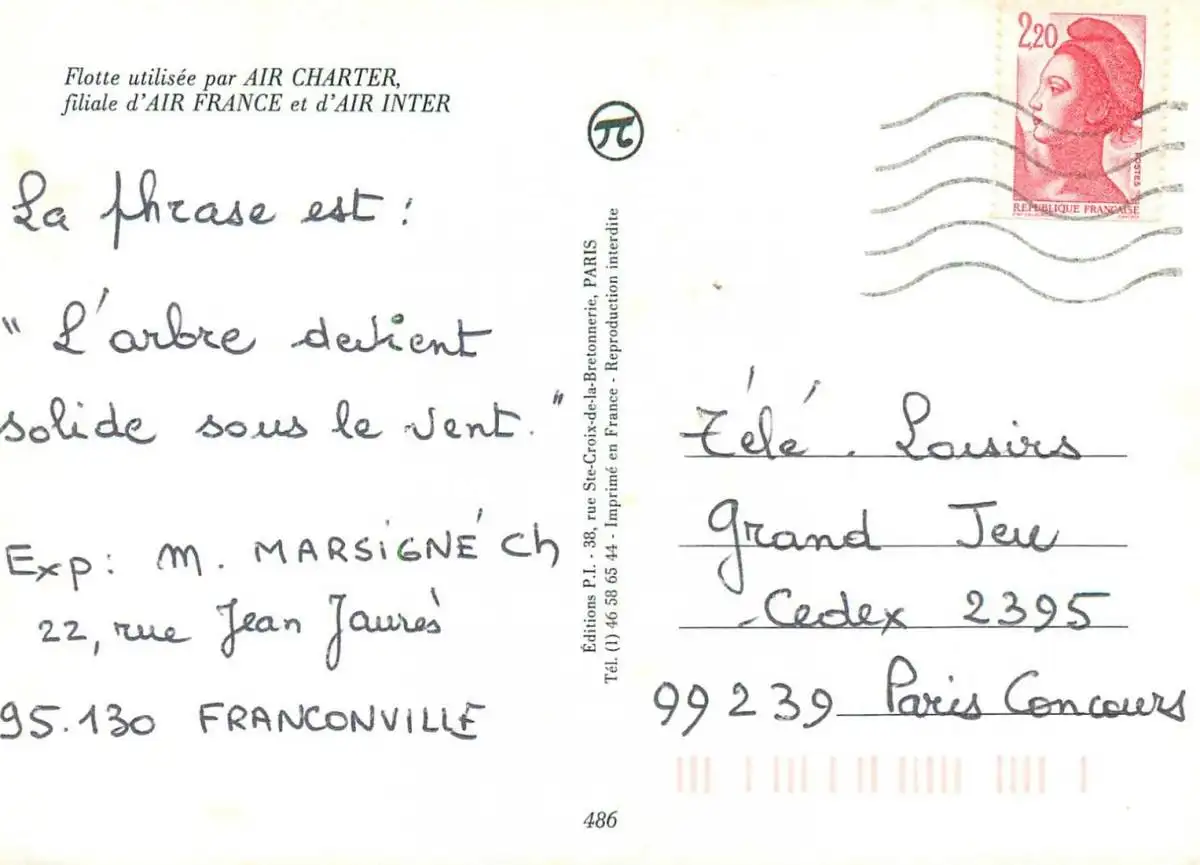 Flotte utilisée par AIR CHARTER,
filiale d'AIR FRANCE et d'AIR INTER
La phrase est :
" L'arbre devient
solide sous le vent. "
Exp : M. MARSIGNÉ Ch
22, rue Jean Jaurès
95.130 FRANCONVILLE
π
Éditions P.I. - 38, rue Ste-Croix-de-la-Bretonnerie, PARIS
Tél. (1) 46 58 65 44 - Imprimé en France - Reproduction interdite
486
2,20
POSTES
REPUBLIQUE FRANÇAISE
Télé. Loisirs
Grand Jeu
Cedex 2395
99239 Paris Concours